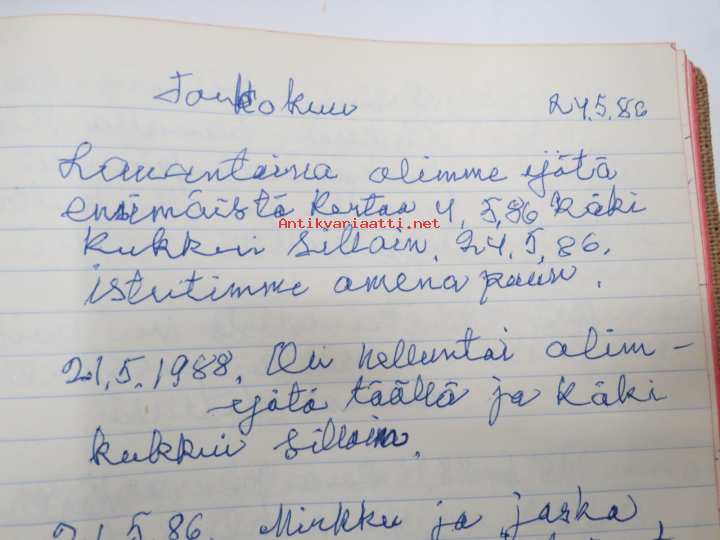 Toukokuu 24.5.86
Lauantaina olimme yötä
ensimäistä kertaa 4.5.86 Käki
Antikvariaatti.net
kukkui silloin. 24.5.86.
istutimme omena puun.
21.5.1988. Oli helluntai olim-
yötä täällä ja Käki
kukkui silloin.
21.5.86. Mirkku ja jaska